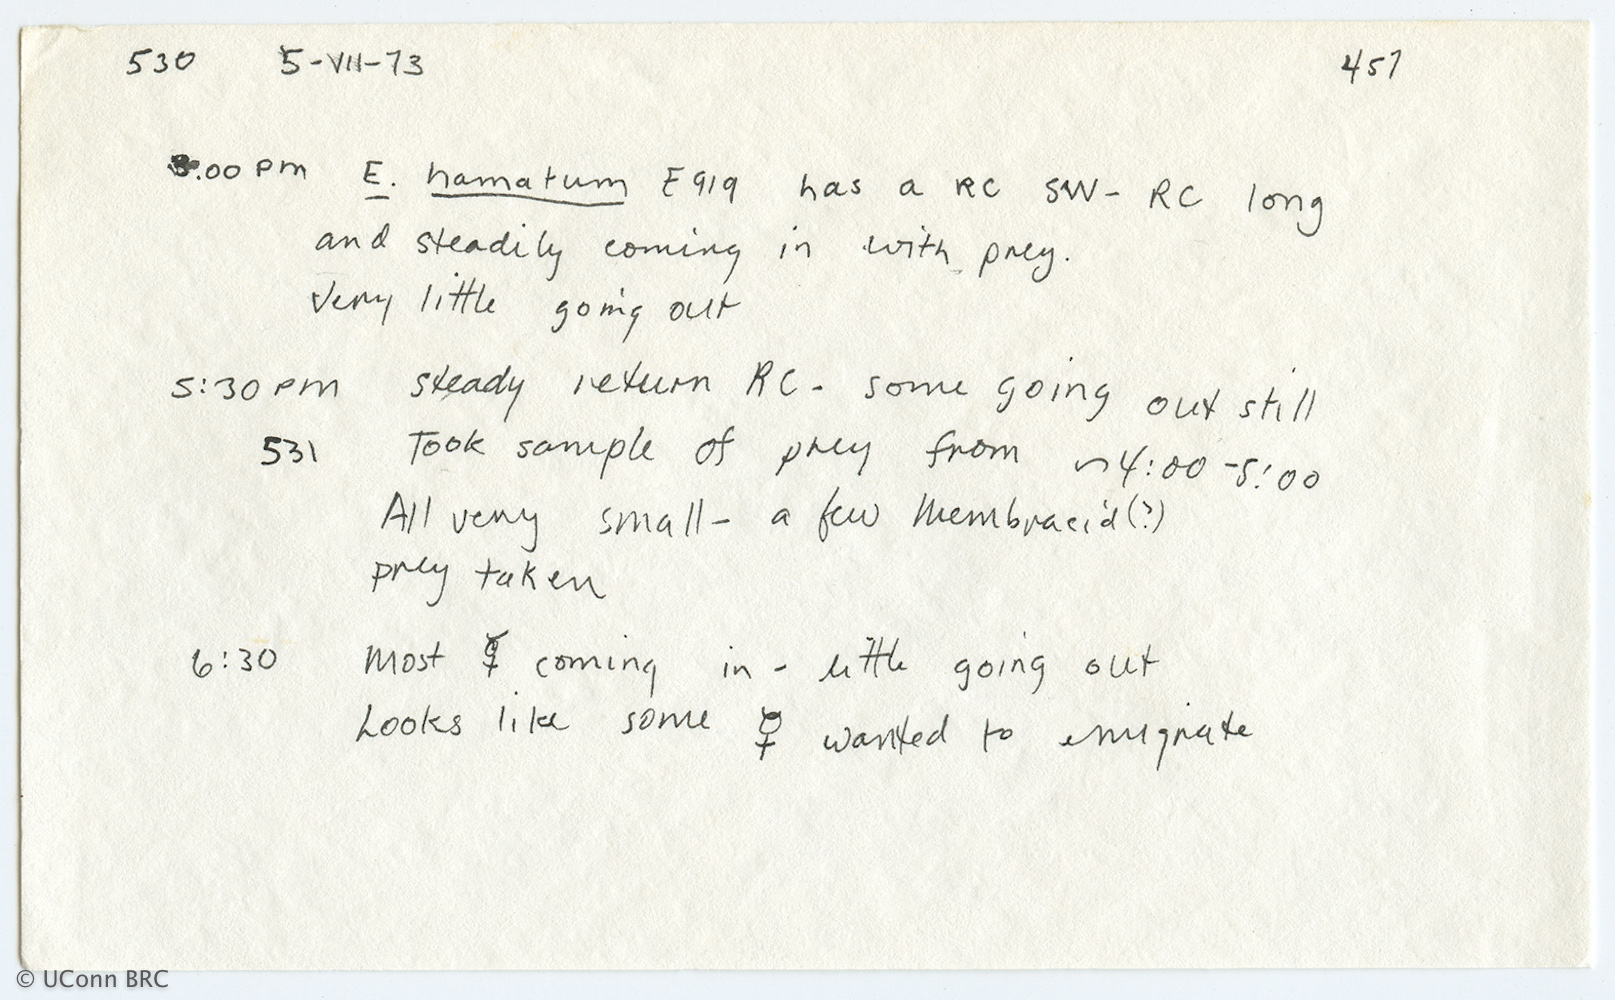 530 5-VII-73 457
3:00 PM E. hamatum E919 has a RC SW- RC long
and steadily coming in with prey.
Very little going out
5:30 PM steady return RC- some going out still
531 Took sample of prey from ~4:00-5:00
All very small- a few Membracid(?)
prey taken
6:30 Most ☿ coming in - little going out
Looks like some ☿ wanted to emigrate
© UConn BRC